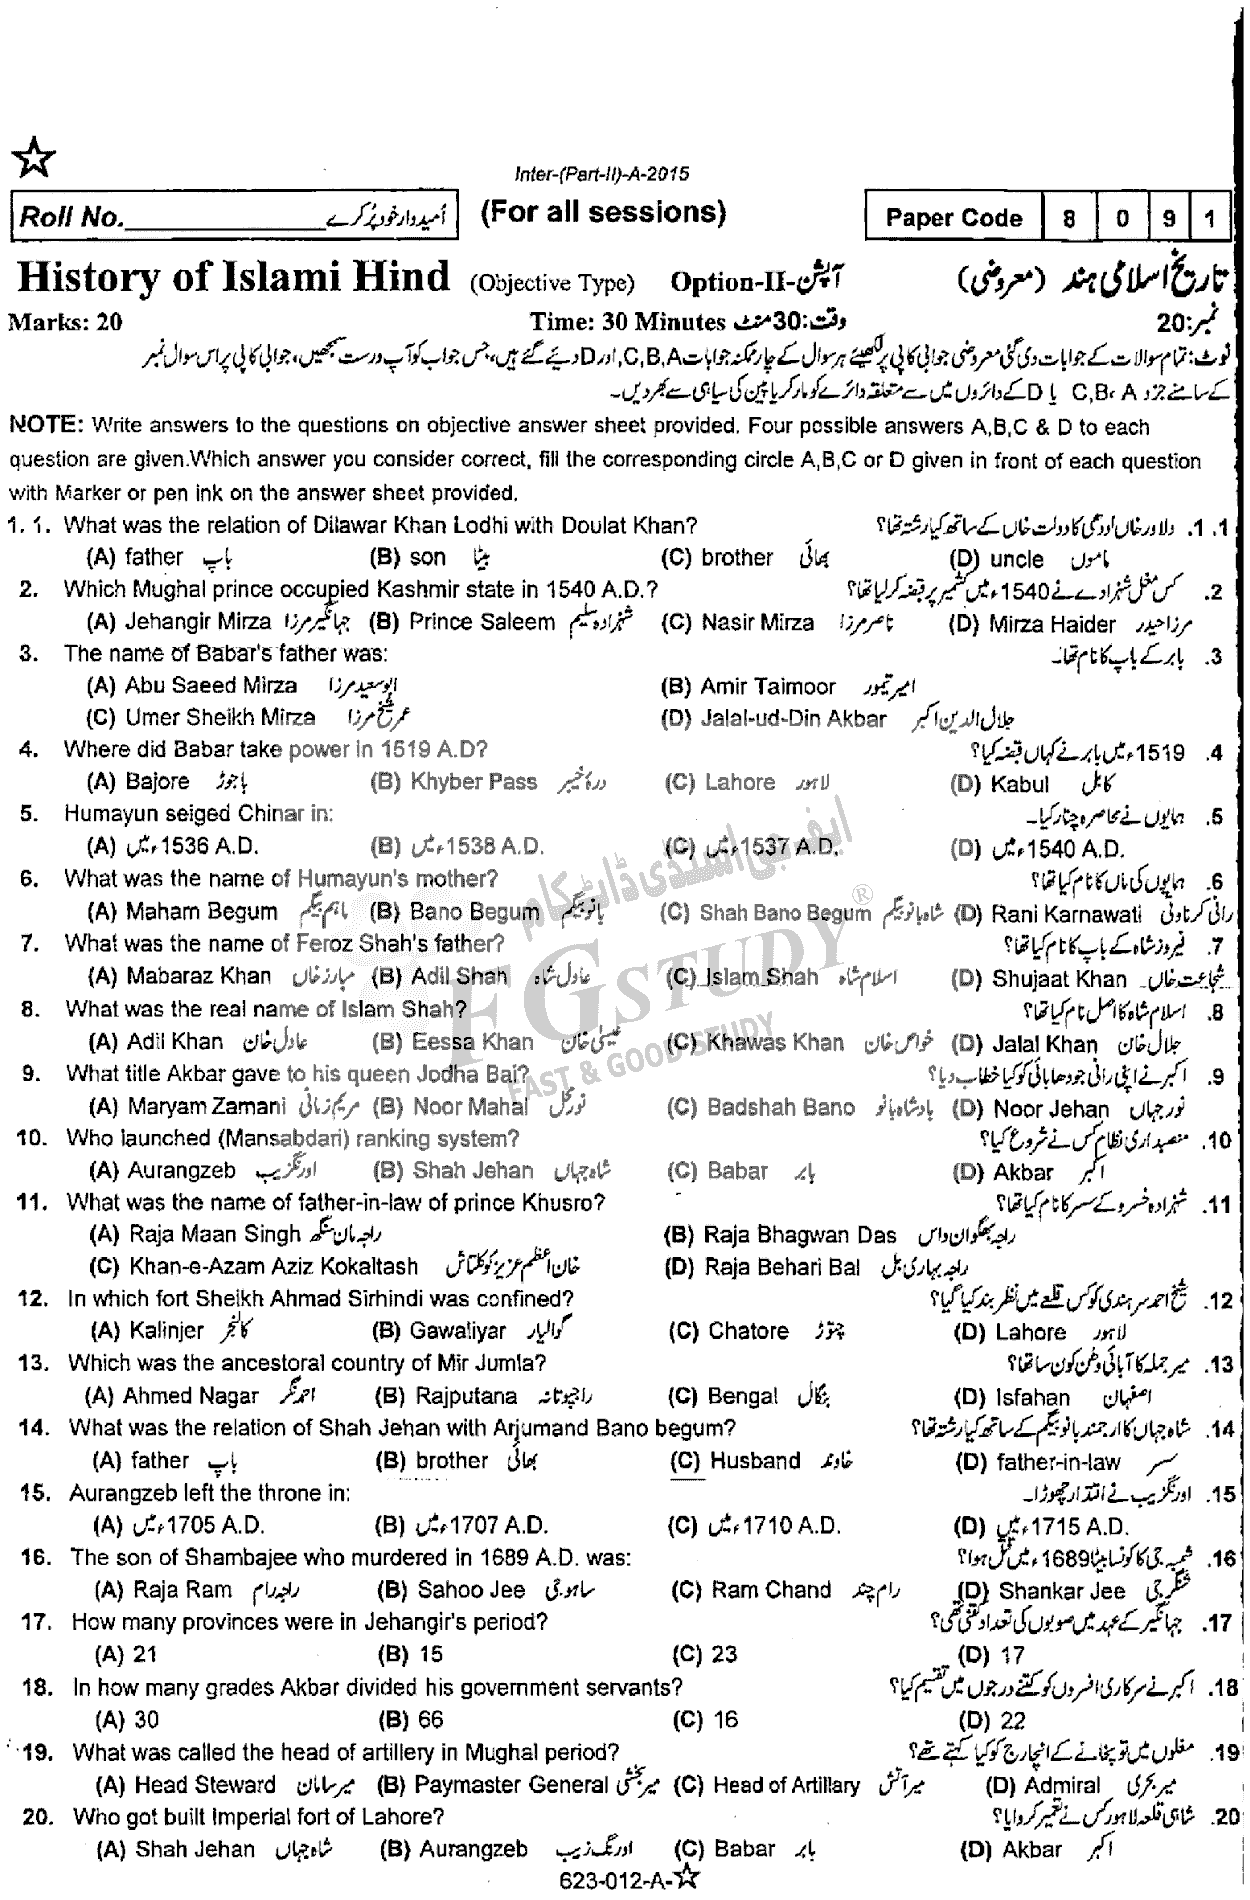 Inter-(Part-II)-A-2015
Roll No. اُمیدوار خود پُر کرے (For all sessions) Paper Code 8 0 9 1
History of Islami Hind (Objective Type) Option-II-آپشن تاریخ اسلامی ہند (معروضی)
Marks: 20 Time: 30 Minutes وقت:30منٹ نمبر:20
نوٹ: تمام سوالات کے جوابات دی گئی معروضی جوابی کاپی پر لکھیئے ہر سوال کے چار ممکنہ جوابات C,B,A اور D دیئے گئے ہیں، جس جواب کو آپ درست سمجھیں، جوابی کاپی پر اس سوال نمبر
کے سامنے جزو C,B، A یا D کے دائروں میں سے متعلقہ دائرے کو مارکر یا پین کی سیاہی سے بھر دیں۔
NOTE: Write answers to the questions on objective answer sheet provided. Four possible answers A,B,C & D to each
question are given.Which answer you consider correct, fill the corresponding circle A,B,C or D given in front of each question
with Marker or pen ink on the answer sheet provided.
1. 1. What was the relation of Dilawar Khan Lodhi with Doulat Khan? دلاور خاں لودھی کا دولت خاں کے ساتھ کیا رشتہ تھا؟ .1 .1
(A) father باپ (B) son بیٹا (C) brother بھائی (D) uncle ماموں
2. Which Mughal prince occupied Kashmir state in 1540 A.D.? کس مغل شہزادے نے 1540ء میں کشمیر پر قبضہ کر لیا تھا؟ .2
(A) Jehangir Mirza جہانگیر مرزا (B) Prince Saleem شہزادہ سلیم (C) Nasir Mirza ناصر مرزا (D) Mirza Haider مرزا حیدر
3. The name of Babar's father was: بابر کے باپ کا نام تھا۔ .3
(A) Abu Saeed Mirza ابوسعید مرزا (B) Amir Taimoor امیر تیمور
(C) Umer Sheikh Mirza عمر شیخ مرزا (D) Jalal-ud-Din Akbar جلال الدین اکبر
4. Where did Babar take power in 1519 A.D? 1519ء میں بابر نے کہاں قبضہ کیا؟ .4
(A) Bajore باجوڑ (B) Khyber Pass درۂ خیبر (C) Lahore لاہور (D) Kabul کابل
5. Humayun seiged Chinar in: ہمایوں نے محاصرہ چنار کیا۔ .5
(A) 1536 A.D.ء میں (B) 1538 A.D.ء میں (C) 1537 A.D.ء میں (D) 1540 A.D.ء میں
6. What was the name of Humayun's mother? ہمایوں کی ماں کا نام کیا تھا؟ .6
(A) Maham Begum ماہم بیگم (B) Bano Begum بانو بیگم (C) Shah Bano Begum شاہ بانو بیگم (D) Rani Karnawati رانی کرناوتی
7. What was the name of Feroz Shah's father? فیروز شاہ کے باپ کا نام کیا تھا؟ .7
(A) Mabaraz Khan مبارز خاں (B) Adil Shah عادل شاہ (C) Islam Shah اسلام شاہ (D) Shujaat Khan شجاعت خاں
8. What was the real name of Islam Shah? اسلام شاہ کا اصل نام کیا تھا؟ .8
(A) Adil Khan عادل خان (B) Eessa Khan عیسیٰ خان (C) Khawas Khan خواص خان (D) Jalal Khan جلال خان
9. What title Akbar gave to his queen Jodha Bai? اکبر نے اپنی رانی جودھا بائی کو کیا خطاب دیا؟ .9
(A) Maryam Zamani مریم زمانی (B) Noor Mahal نور محل (C) Badshah Bano بادشاہ بانو (D) Noor Jehan نور جہاں
10. Who launched (Mansabdari) ranking system? منصبداری نظام کس نے شروع کیا؟ .10
(A) Aurangzeb اورنگزیب (B) Shah Jehan شاہ جہاں (C) Babar بابر (D) Akbar اکبر
11. What was the name of father-in-law of prince Khusro? شہزادہ خسرو کے سسر کا نام کیا تھا؟ .11
(A) Raja Maan Singh راجہ مان سنگھ (B) Raja Bhagwan Das راجہ بھگوان داس
(C) Khan-e-Azam Aziz Kokaltash خان اعظم عزیز کوکلتاش (D) Raja Behari Bal راجہ بہاری بل
12. In which fort Sheikh Ahmad Sirhindi was confined? شیخ احمد سرہندی کو کس قلعے میں نظر بند کیا گیا؟ .12
(A) Kalinjer کالنجر (B) Gawaliyar گوالیار (C) Chatore چتوڑ (D) Lahore لاہور
13. Which was the ancestoral country of Mir Jumla? میر جملہ کا آبائی وطن کون سا تھا؟ .13
(A) Ahmed Nagar احمد نگر (B) Rajputana راجپوتانہ (C) Bengal بنگال (D) Isfahan اصفہان
14. What was the relation of Shah Jehan with Arjumand Bano begum? شاہ جہاں کا ارجمند بانو بیگم کے ساتھ کیا رشتہ تھا؟ .14
(A) father باپ (B) brother بھائی (C) Husband خاوند (D) father-in-law سسر
15. Aurangzeb left the throne in: اورنگزیب نے اقتدار چھوڑا۔ .15
(A) 1705 A.D.ء میں (B) 1707 A.D.ء میں (C) 1710 A.D.ء میں (D) 1715 A.D.ء میں
16. The son of Shambajee who murdered in 1689 A.D. was: شمبہ جی کا کونسا بیٹا 1689ء میں قتل ہوا؟ .16
(A) Raja Ram راجہ رام (B) Sahoo Jee ساہو جی (C) Ram Chand رام چند (D) Shankar Jee شنکر جی
17. How many provinces were in Jehangir's period? جہانگیر کے عہد میں صوبوں کی تعداد کتنی تھی؟ .17
(A) 21 (B) 15 (C) 23 (D) 17
18. In how many grades Akbar divided his government servants? اکبر نے سرکاری افسروں کو کتنے درجوں میں تقسیم کیا؟ .18
(A) 30 (B) 66 (C) 16 (D) 22
19. What was called the head of artillery in Mughal period? مغلوں میں توپخانے کے انچارج کو کیا کہتے تھے؟ .19
(A) Head Steward میر سامان (B) Paymaster General میر بخشی (C) Head of Artillary میر آتش (D) Admiral میر بحری
20. Who got built Imperial fort of Lahore? شاہی قلعہ لاہور کس نے تعمیر کروایا؟ .20
(A) Shah Jehan شاہ جہاں (B) Aurangzeb اورنگ زیب (C) Babar بابر (D) Akbar اکبر
623-012-A-☆
ایف جی اسٹڈی ڈاٹ کام
FG STUDY ®
FAST & GOOD STUDY